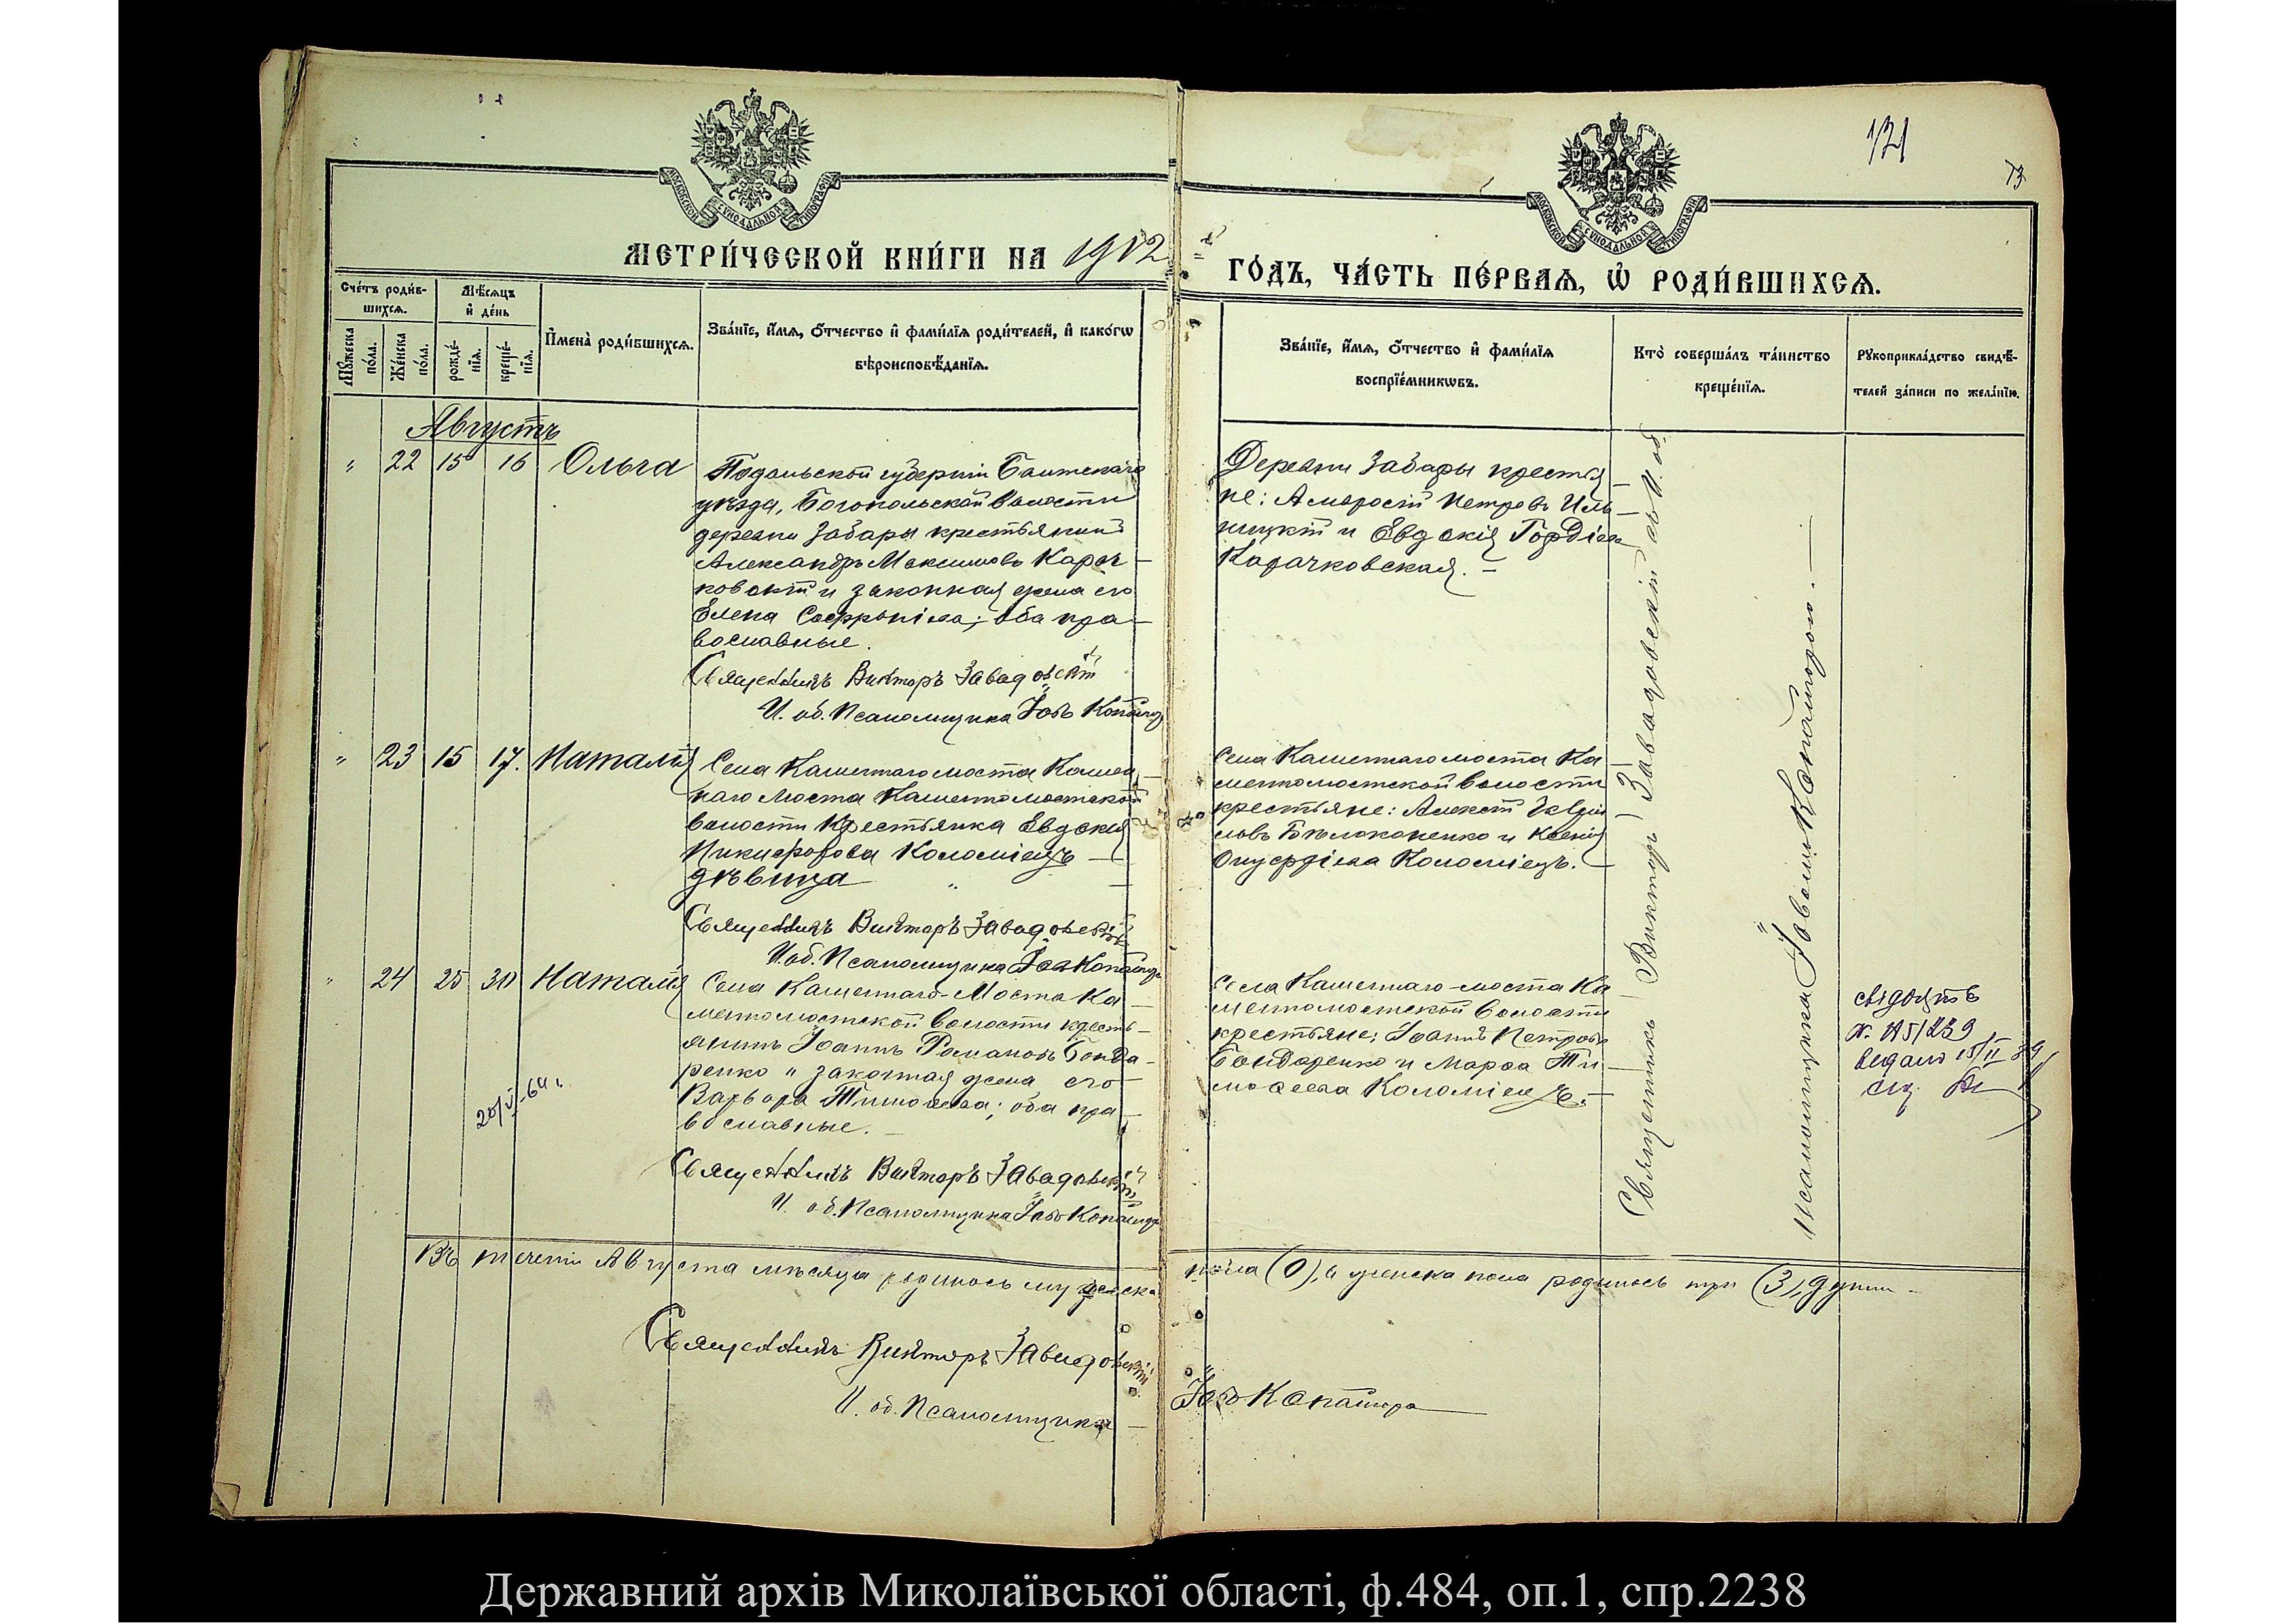 121
73
МОСКОВСКОЙ СѴНОДАЛЬНОЙ ТИПОГРАФІИ
МОСКОВСКОЙ СѴНОДАЛЬНОЙ ТИПОГРАФІИ
МЕТРИ́ЧЕСКОЙ КНИ́ГИ НА 1912
ГО́ДЪ, ЧА́СТЬ ПЕ́РВАѦ, Ѡ҆ РОДИ́ВШИХСѦ.
Сче́тъ роди́в-
шихсѧ.
Мꙋ́жеска
по́ла.
Же́нска
по́ла.
Мѣ́сѧцъ
и҆ де́нь
рожде́-
нїѧ.
креще́-
нїѧ.
И҆мена̀ роди́вшихсѧ.
Зва́нїе, и҆́мѧ, ѻ҆́тчество и҆ фами́лїѧ роди́телей, и҆ како́гѡ
вѣроисповѣ́данїѧ.
Зва́нїе, и҆́мѧ, ѻ҆́тчество и҆ фами́лїѧ
воспрїе́мникѡвъ.
Кто̀ соверша́лъ та́инство
креще́нїѧ.
Рꙋкоприкла́дство свидѣ́-
телей за́писи по жела́нїю.
Августъ
" 22 15 16 Ольга
Подольской губерніи Балтскаго
уѣзда, Богопольской волости
деревни Забары крестьянинъ
Александръ Максимовъ Карач-
ковскій и законная жена его
Елена Софроніева; оба пра-
вославные.
Священникъ Викторъ Завадовскій
И. об. Псаломщика Іовъ
Деревни Забары крестья-
не: Амвросій Петровъ Иль-
ницкій и Евдокія Гордіева
Карачковская.
" 23 15 17. Наталія
Села Каменнаго моста Камен-
наго Моста Каменномостской
волости крестьянка Евдокія
Никифорова Коломіецъ
дѣвица "
Священникъ Викторъ Завадовскій
И. об. Псаломщика Іовъ
Села Каменнаго моста Ка-
менномостской волости
крестьяне: Алексій
Бѣлоконенко и Ксенія
Онуфріева Коломіецъ.
" 24 25 30 Наталія
Села Каменнаго-Моста Ка-
менномостской волости кресть-
янинъ Іоаннъ Романовъ Бонда-
ренко и законная жена его
Варвара Тимоѳеева; оба пра-
вославные.
Священникъ Викторъ Завадовскій
И. об. Псаломщика Іовъ
Села Каменнаго-моста Ка-
менномостской волости
крестьяне: Іоаннъ Петровъ
Бондаренко и Марѳа Ти-
моѳеева Коломіецъ.
Священникъ Викторъ Завадовскій и И. об.
Псаломщика
Въ теченіи Августа мѣсяца родилось мужеска
пола (0), а женска пола родилось три (3), души
Священникъ Викторъ Завадовскій
И. об. Псаломщика
Іовъ
Державний архів Миколаївської області, ф.484, оп.1, спр.2238